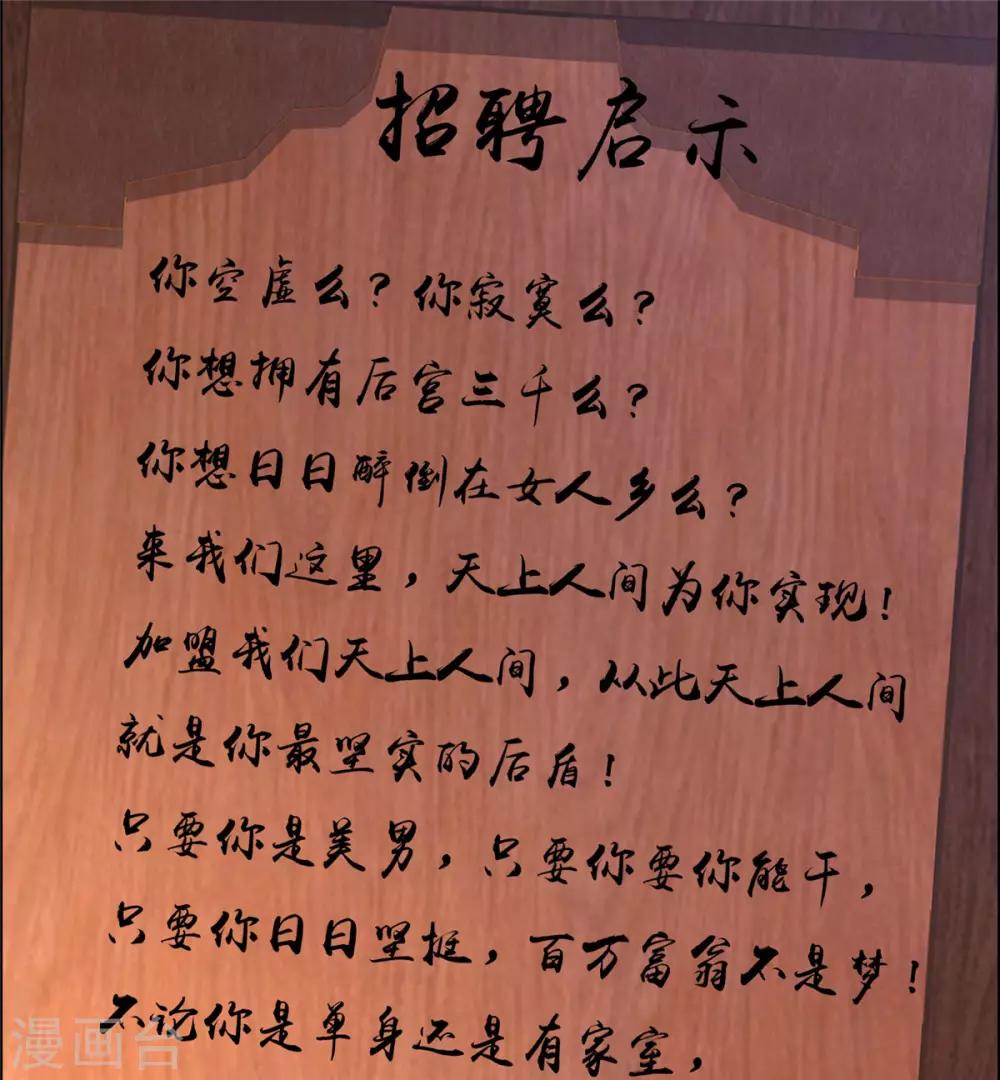 招聘启示
你空虚么？你寂寞么？
你想拥有后宫三千么？
你想日日醉倒在女人乡么？
来我们这里，天上人间为你实现！
加盟我们天上人间，从此天上人间
就是你最坚实的后盾！
只要你是美男，只要你要你能干，
只要你日日坚挺，百万富翁不是梦！
不论你是单身还是有家室，
漫画台